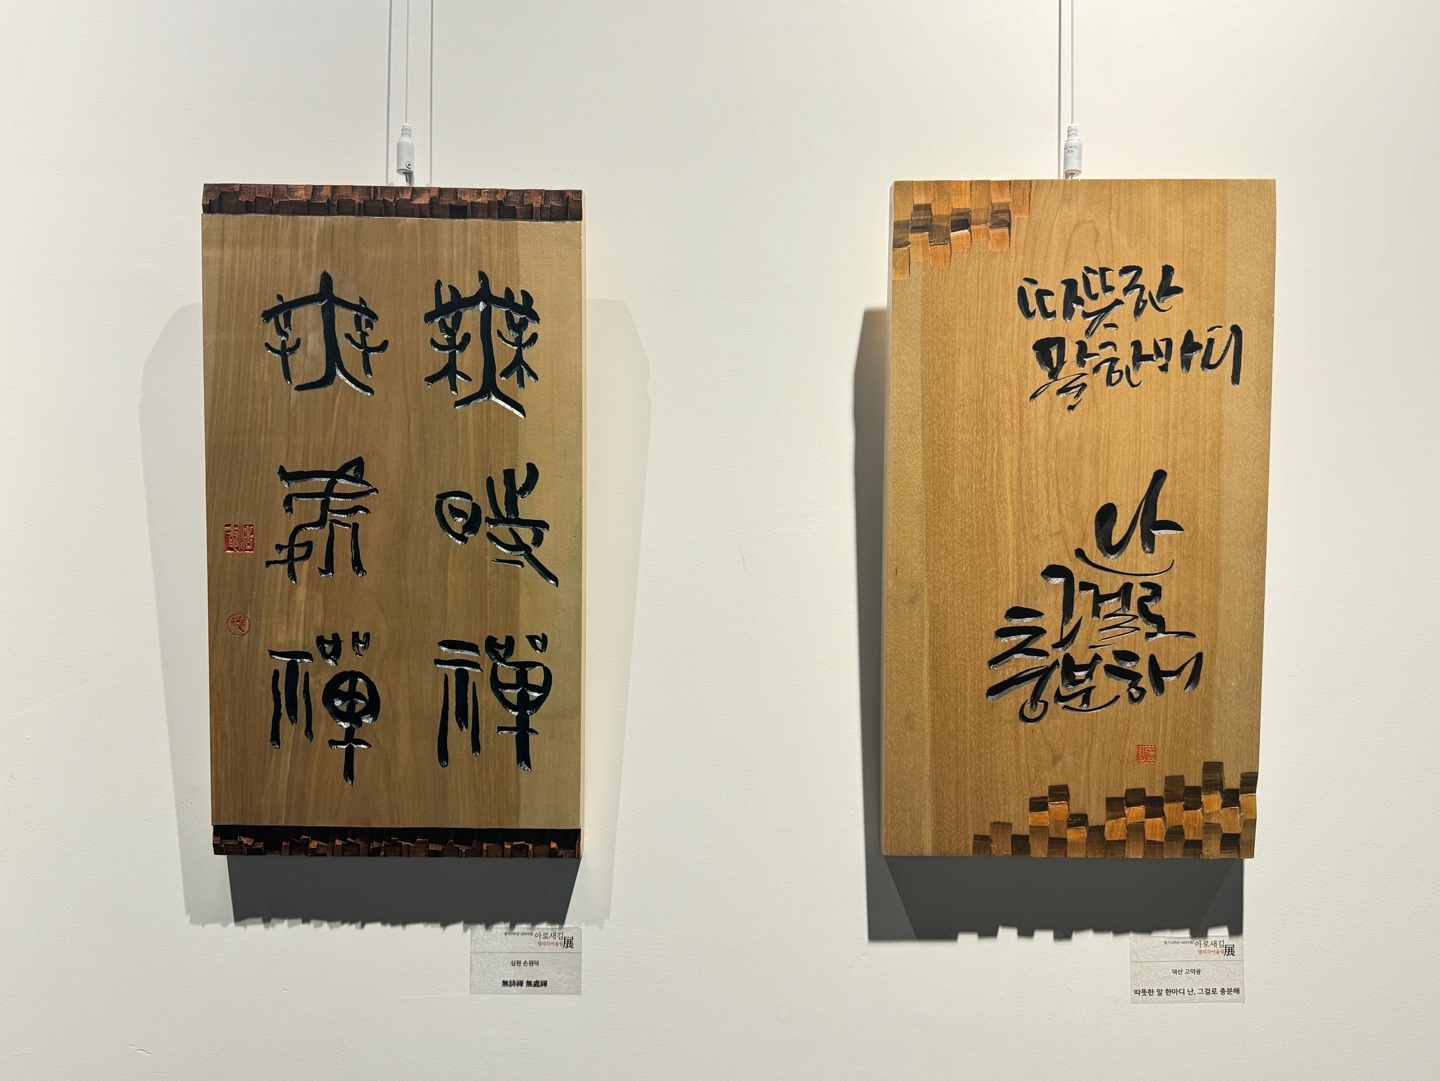 無時禪
無處禪
아로새김展
심원 손원덕
無時禪 無處禪
따뜻한
말 한마디
난
그걸로
충분해
아로새김展
덕산
따뜻한 말 한마디 난, 그걸로 충분해